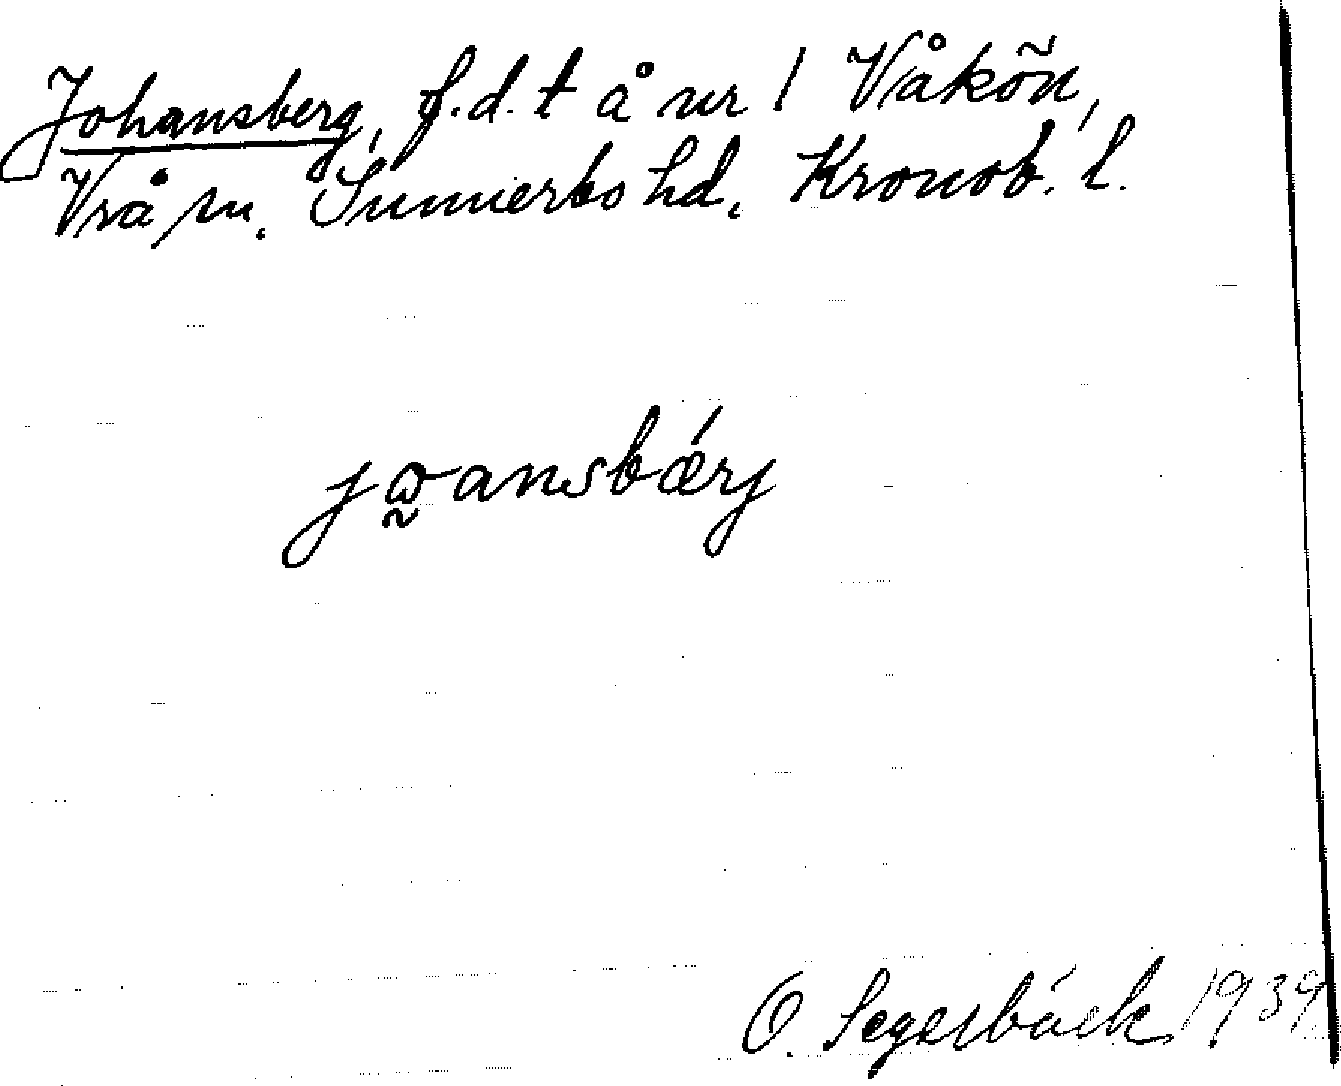 Johansberg, f.d. t å nr 1 Våkön,
Vrå sn. Sunnerbo hd. Kronob. l.
jω̰ansbǽrj
O. Segerbäck 1939